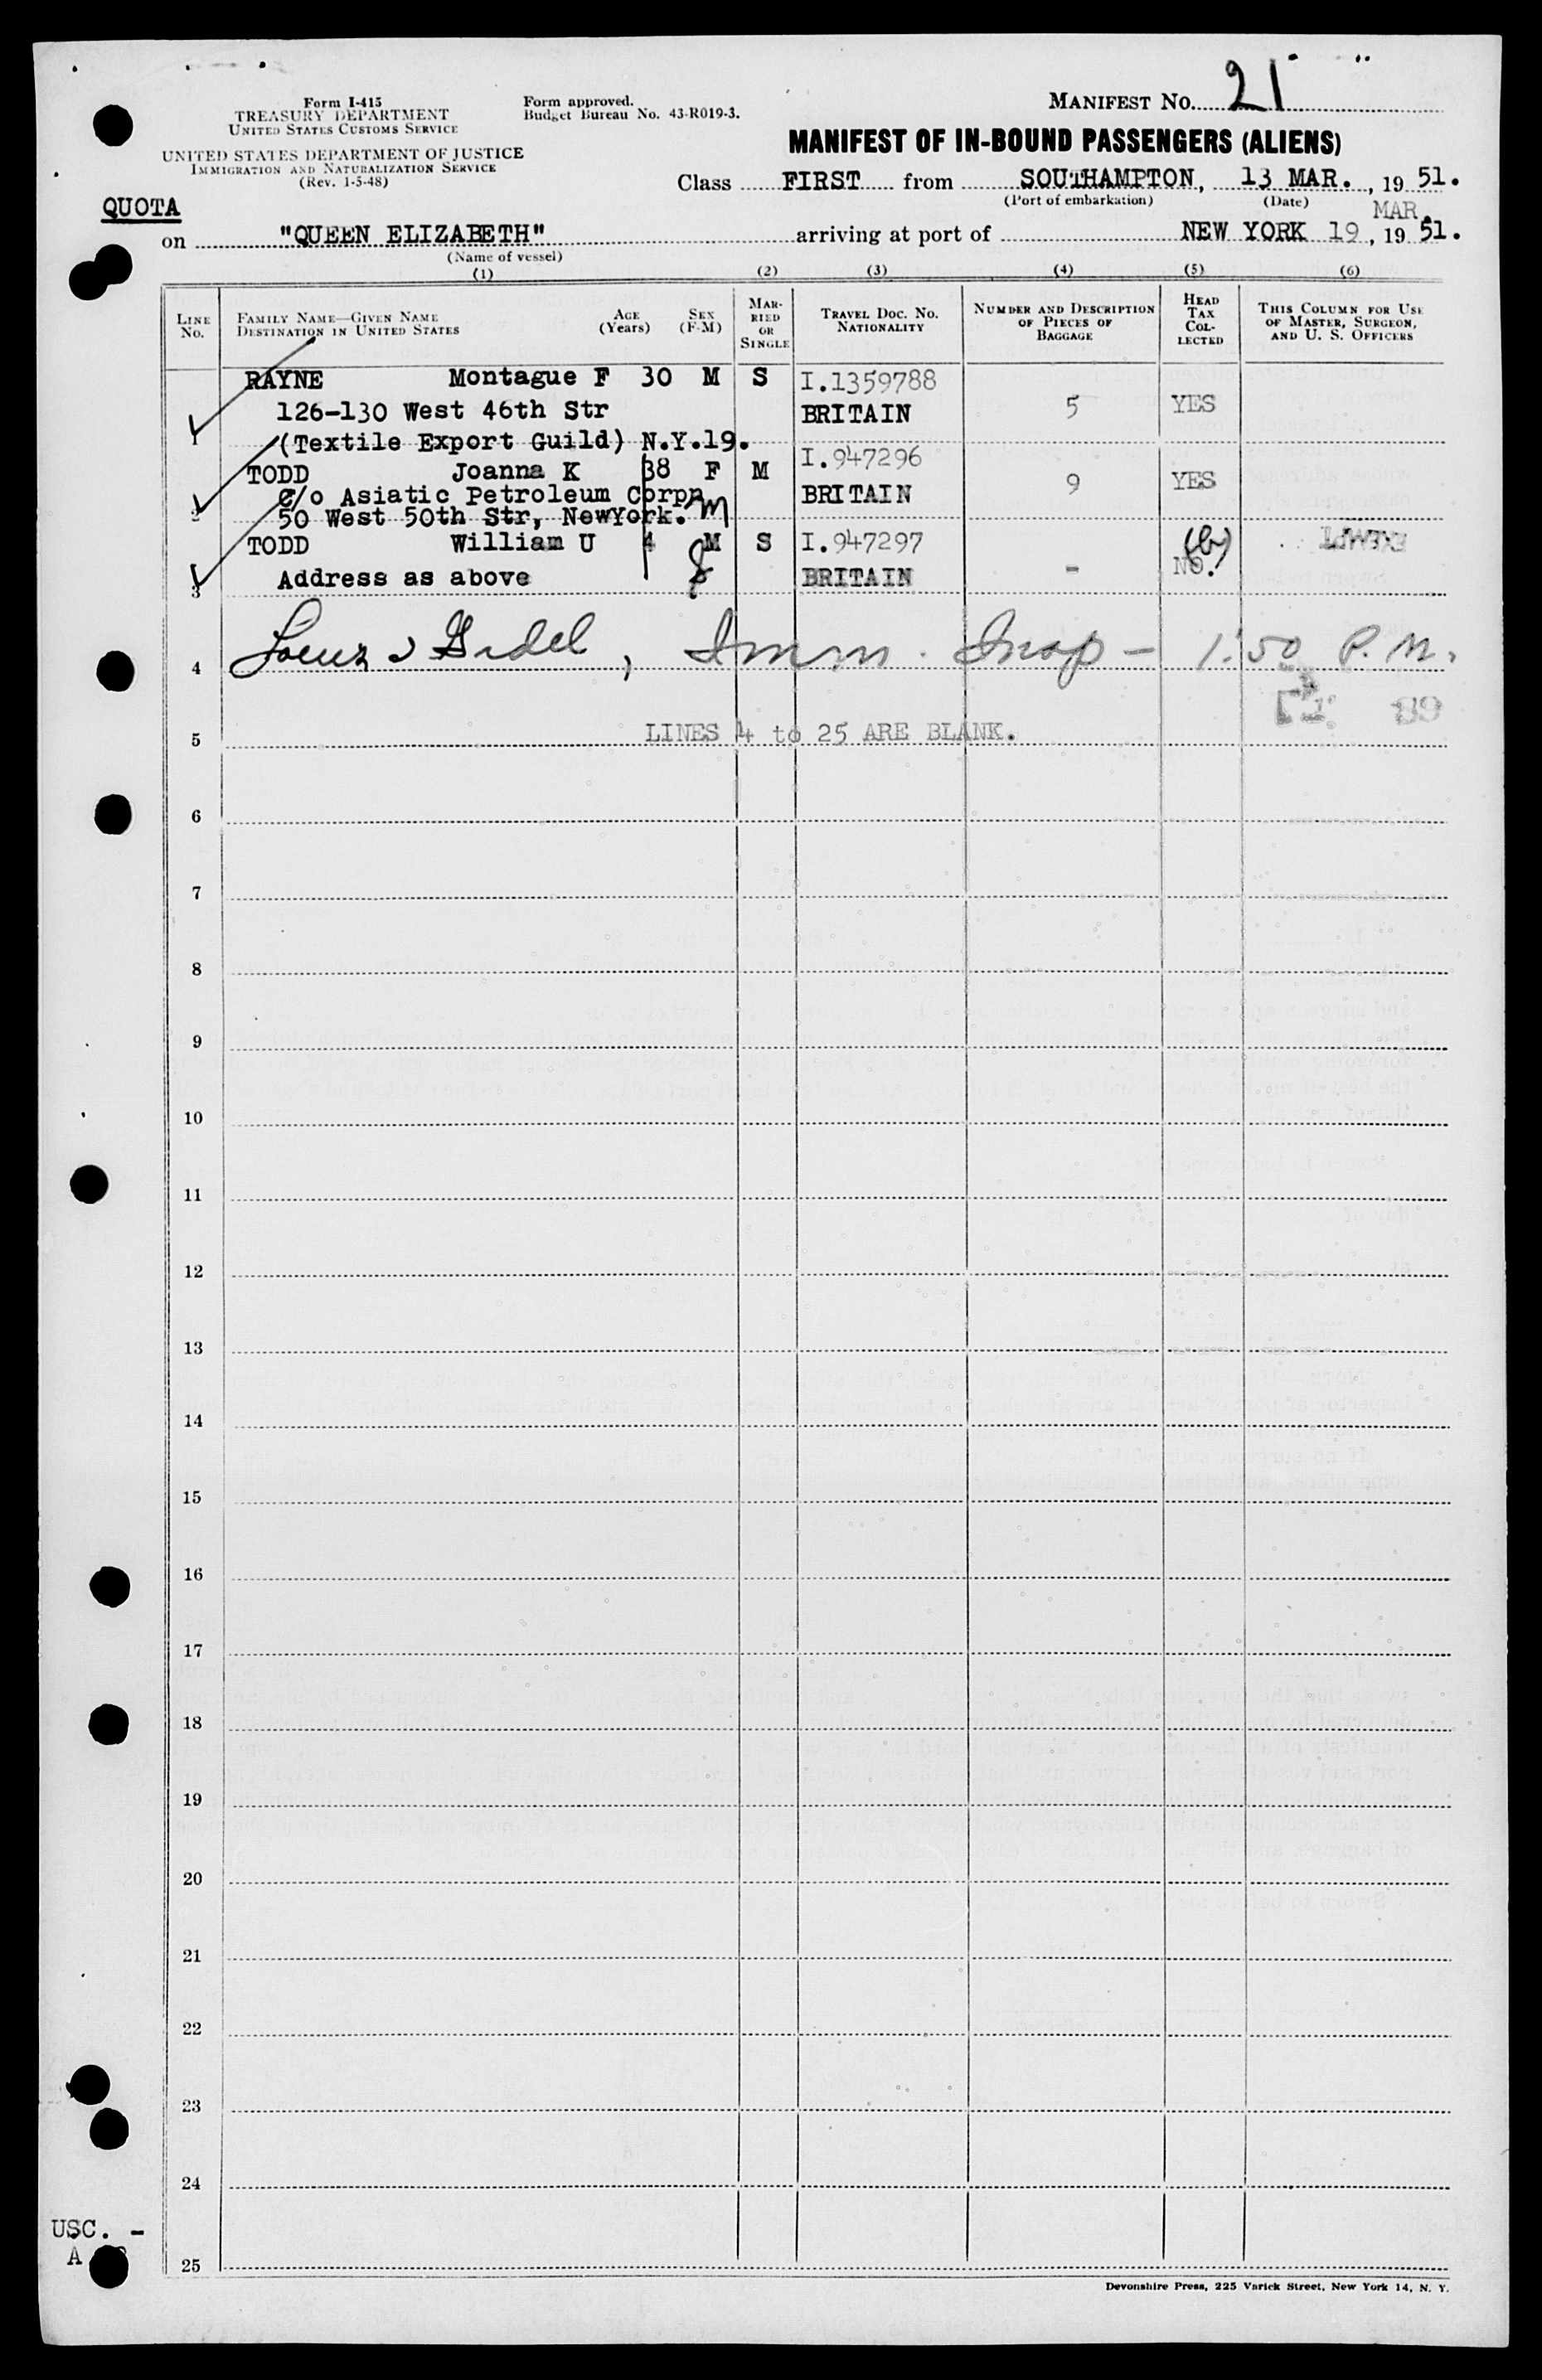 Form I-415
TREASURY DEPARTMENT
UNITED STATES CUSTOMS SERVICE
UNITED STATES DEPARTMENT OF JUSTICE
IMMIGRATION AND NATURALIZATION SERVICE
(Rev. 1-5-48)
Form approved.
Budget Bureau No. 43-R019-3.
MANIFEST No. 21
MANIFEST OF IN-BOUND PASSENGERS (ALIENS)
Class FIRST from SOUTHAMPTON, 13 MAR., 19 51.
(Port of embarkation) (Date)
QUOTA
on "QUEEN ELIZABETH" arriving at port of NEW YORK 19 MAR., 19 51.
(Name of vessel)
(1) (2) (3) (4) (5) (6)
LINE No. FAMILY NAME—GIVEN NAME DESTINATION IN UNITED STATES AGE (Years) SEX (F-M) MARRIED OR SINGLE TRAVEL DOC. NO. NATIONALITY NUMBER AND DESCRIPTION OF PIECES OF BAGGAGE HEAD TAX COLLECTED THIS COLUMN FOR USE OF MASTER, SURGEON, AND U. S. OFFICERS
RAYNE Montague F 30 M S I.1359788
126-130 West 46th Str BRITAIN 5 YES
1 (Textile Export Guild) N.Y.19.
TODD Joanna K 38 F M I.947296
c/o Asiatic Petroleum Corpn BRITAIN 9 YES
2 50 West 50th Str, NewYork. m
TODD William U 4 M S I.947297 (b)
3 Address as above BRITAIN - NO.
4 Imm. Insp - 1:50 P.M.
5 LINES 4 to 25 ARE BLANK.
6
7
8
9
10
11
12
13
14
15
16
17
18
19
20
21
22
23
24
25
USC. -
A
Devonshire Press, 225 Varick Street, New York 14, N. Y.